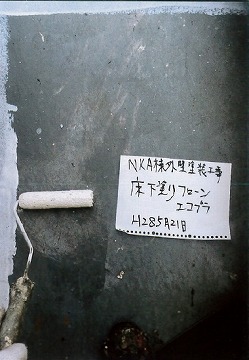 NKA様外壁塗装工事
床下塗りフローン
エコプラ
H28 5月21日